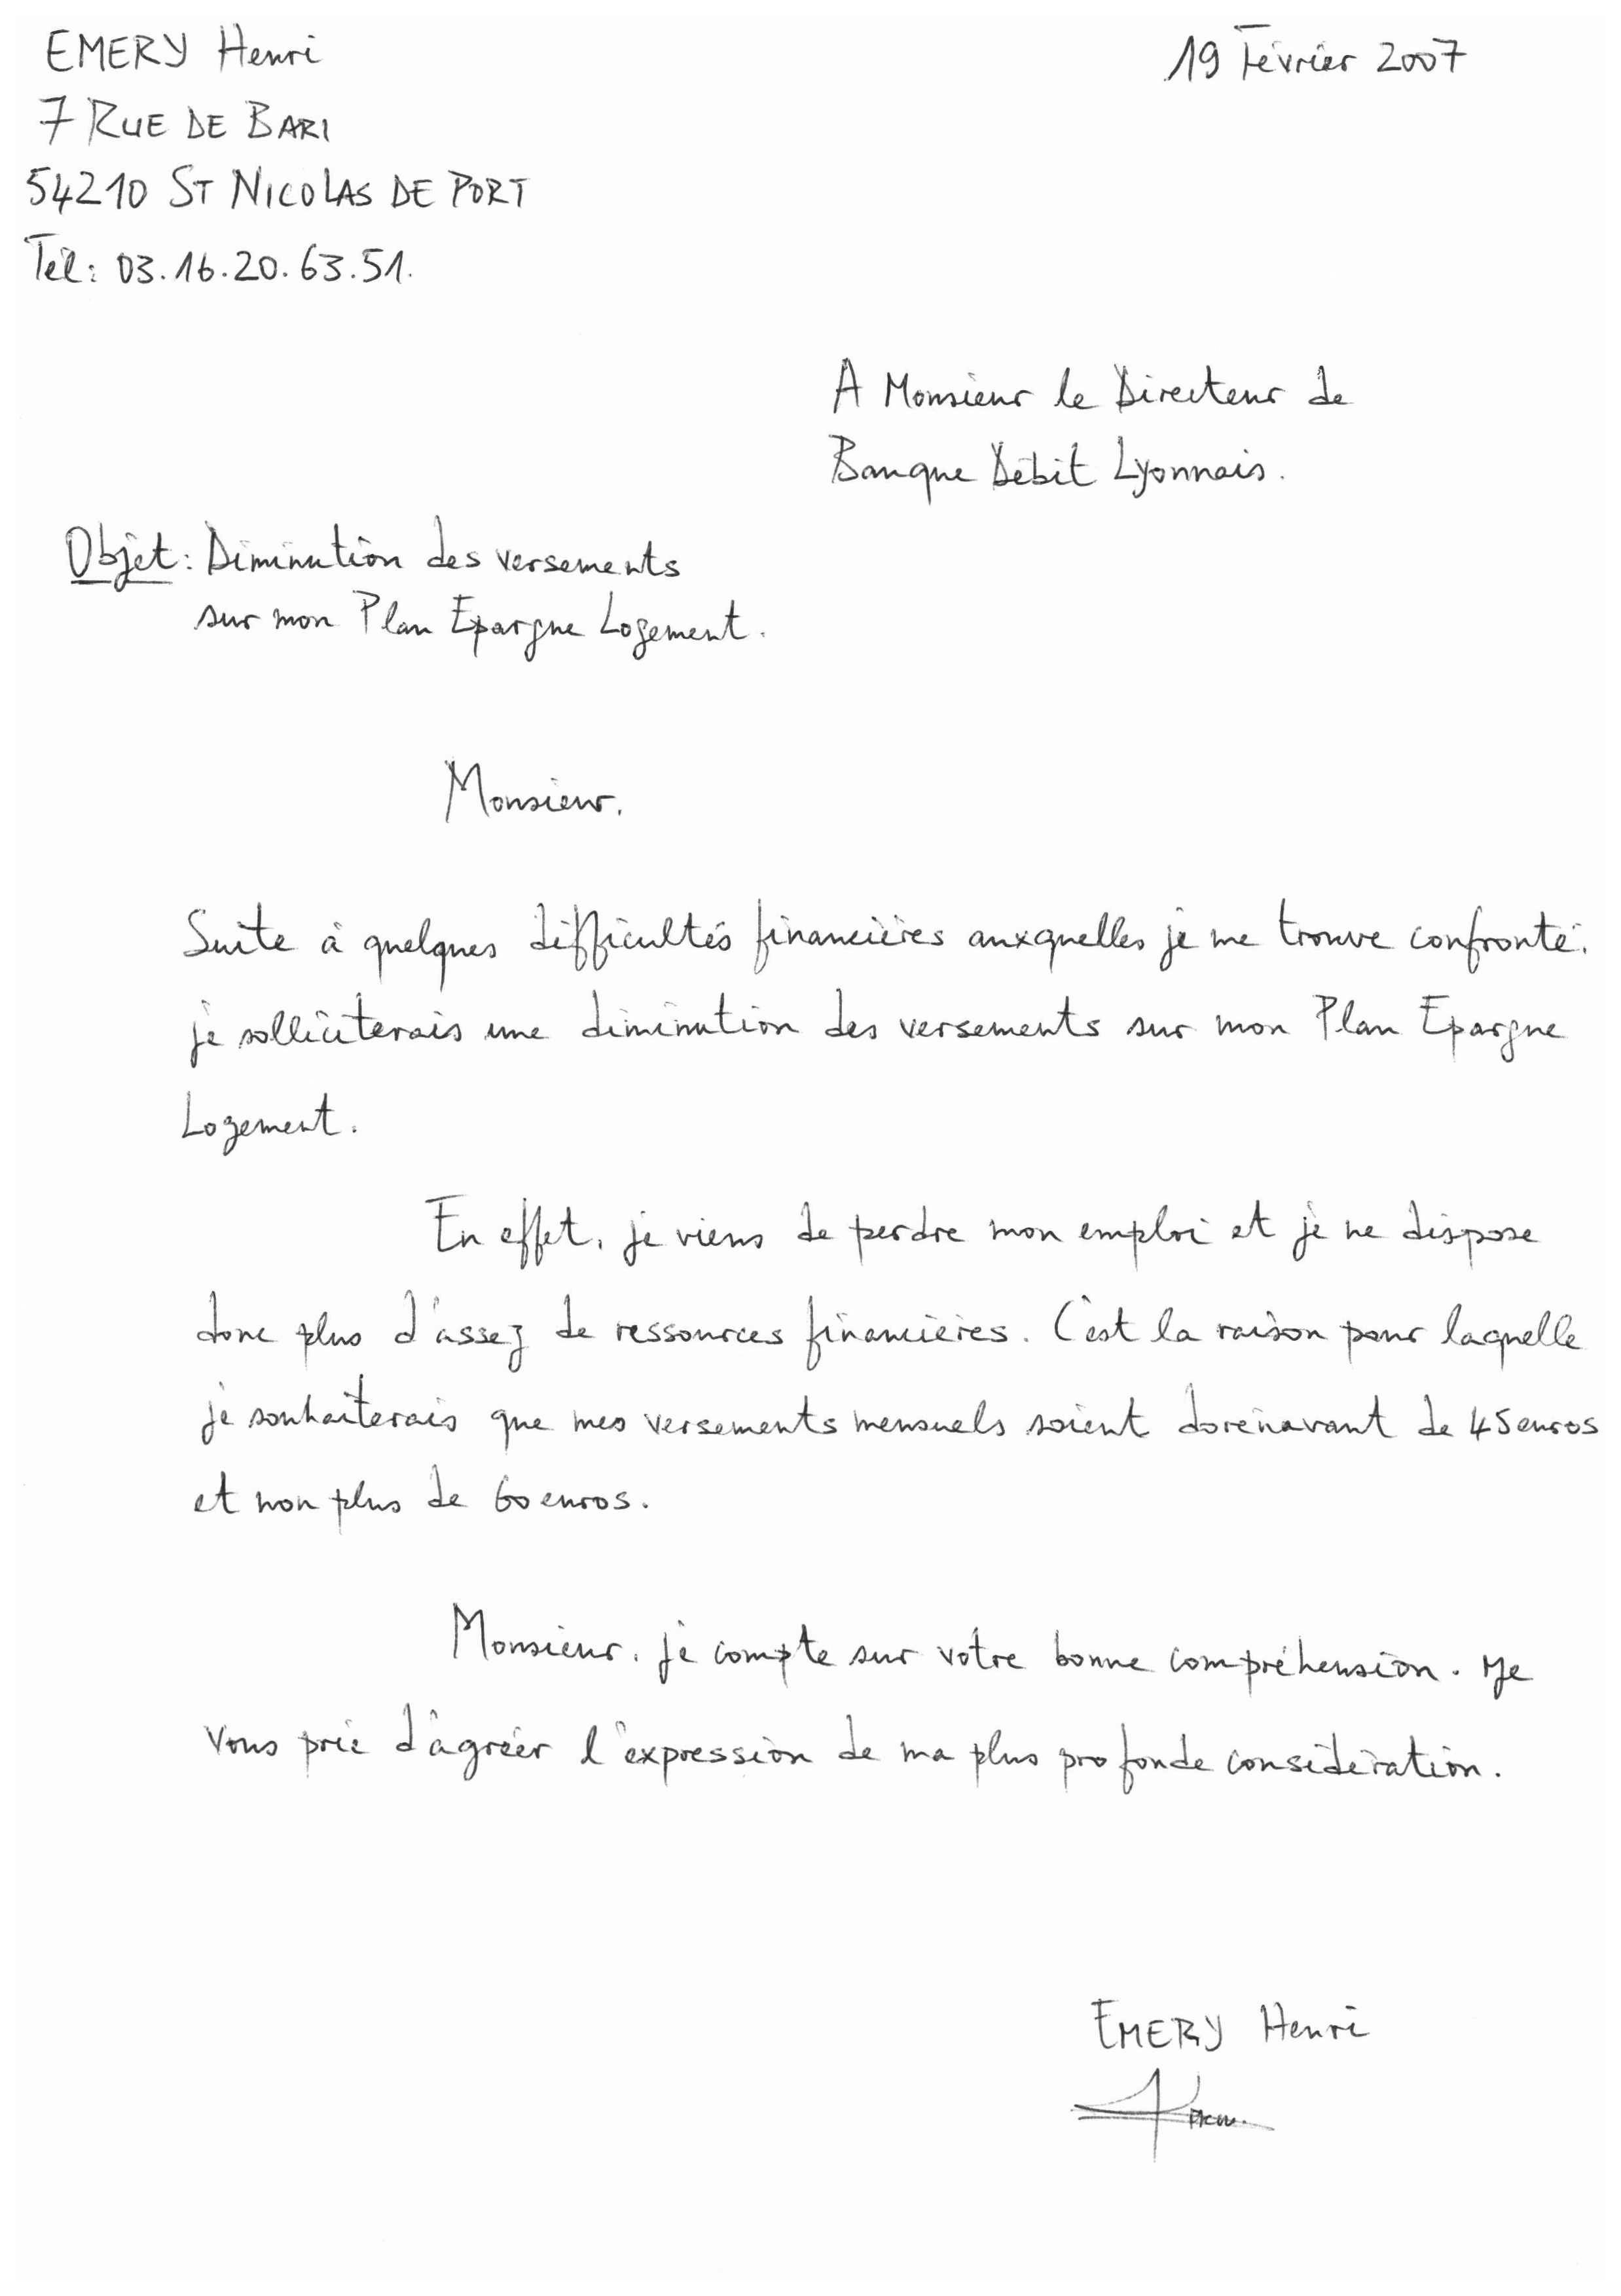 EMERY Henri
19 Février 2007
7 RUE DE BARI
54210 ST NICOLAS DE PORT
Tél: 03.16.20.63.51.
A Monsieur le Directeur de
Banque Débit Lyonnais.
Objet: Diminution des versements
sur mon Plan Epargne Logement.
Monsieur,
Suite à quelques difficultés financières auxquelles je me trouve confronté,
je solliciterais une diminution des versements sur mon Plan Epargne
Logement.
En effet, je viens de perdre mon emploi et je ne dispose
donc plus d'assez de ressources financières. C'est la raison pour laquelle
je souhaiterais que mes versements mensuels soient dorénavant de 45 euros
et non plus de 60 euros.
Monsieur, je compte sur votre bonne compréhension. Je
vous prie d'agréer l'expression de ma plus profonde considération.
EMERY Henri